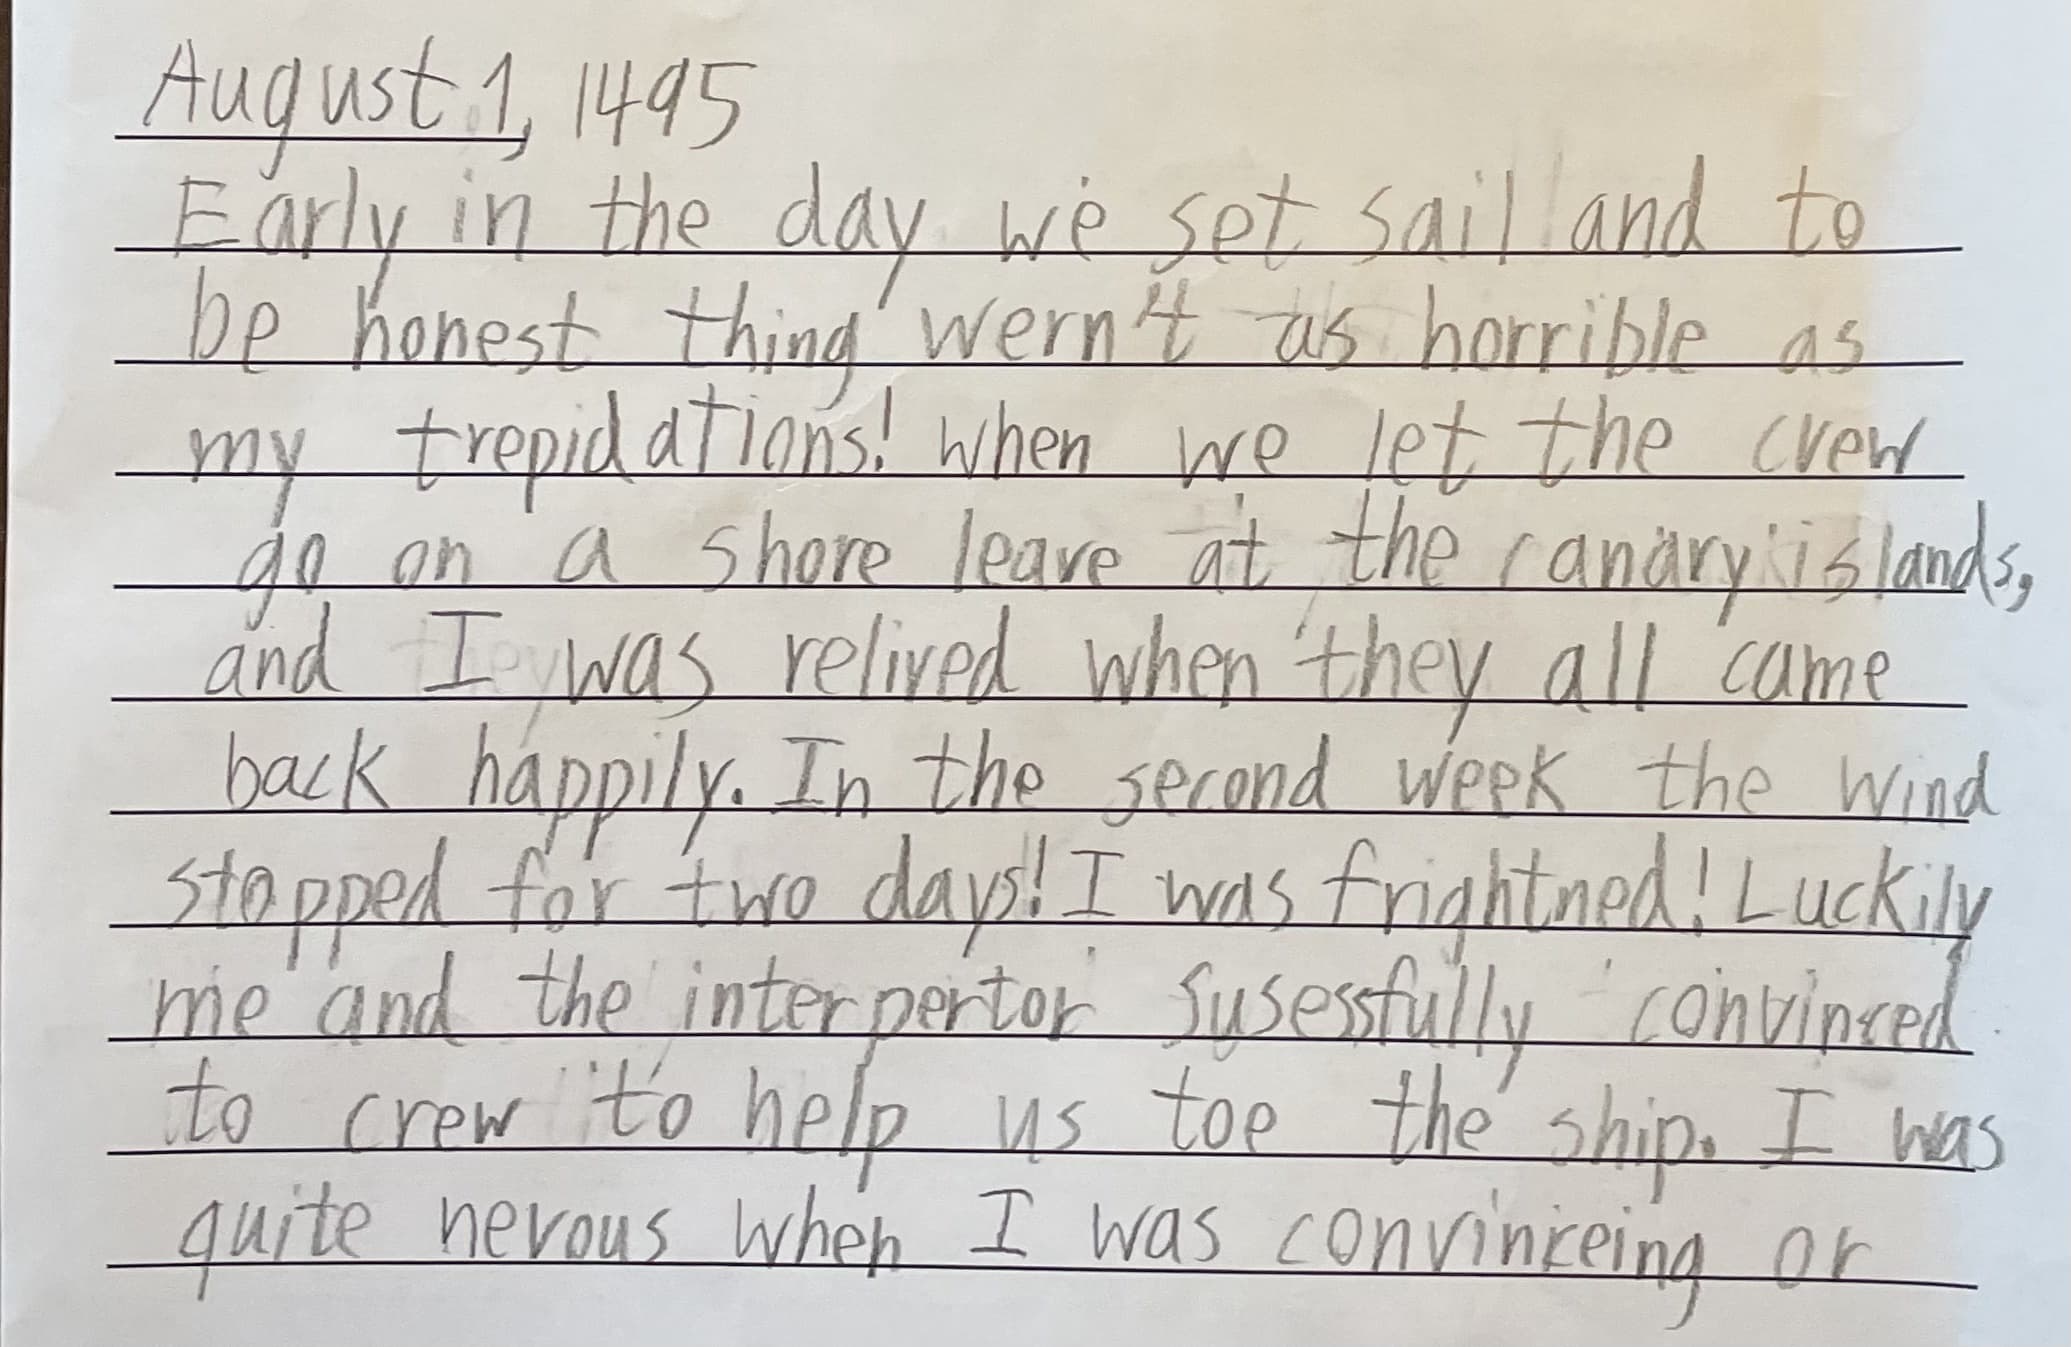 August 1, 1495
Early in the day we set sail and to
be honest thing wern't as horrible as
my trepidations! When we let the crew
go on a shore leave at the canary islands,
and I was relived when they all came
back happily. In the second week the wind
stopped for two days! I was frightned! Luckily
me and the interpertor susessfully convinced
to crew to help us toe the ship. I was
quite nervous when I was convinceing or